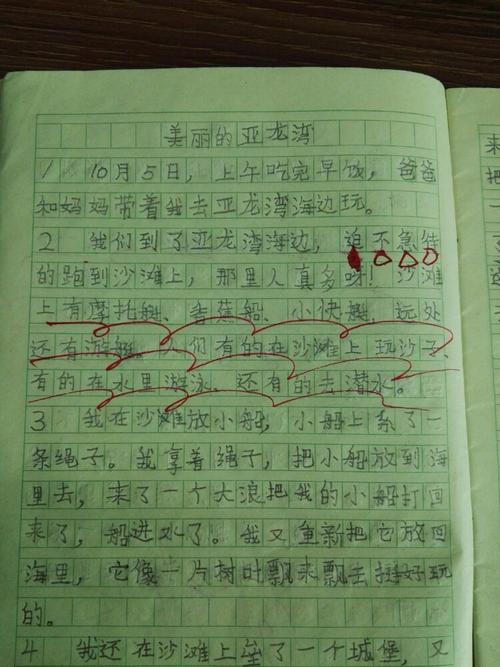 美丽的亚龙湾
1 10月5日，上午吃完早饭，爸爸
和妈妈带着我去亚龙湾海边玩。
2 我们到了亚龙湾海边，迫不急待
的跑到沙滩上，那里人真多呀！沙滩
上有摩托艇、香蕉船、小快艇，远处
还有游艇。人们有的在沙滩上玩沙子、
有的在水里游泳、还有的去潜水。
3 我在沙滩放小船，小船上系了一
条绳子。我拿着绳子，把小船放到海
里去，来了一个大浪把我的小船打回
来了，船进水了。我又重新把它放回
海里，它像一片树叶飘来飘去挺好玩
的。
4 我还在沙滩上垒了一个城堡，又
来
把